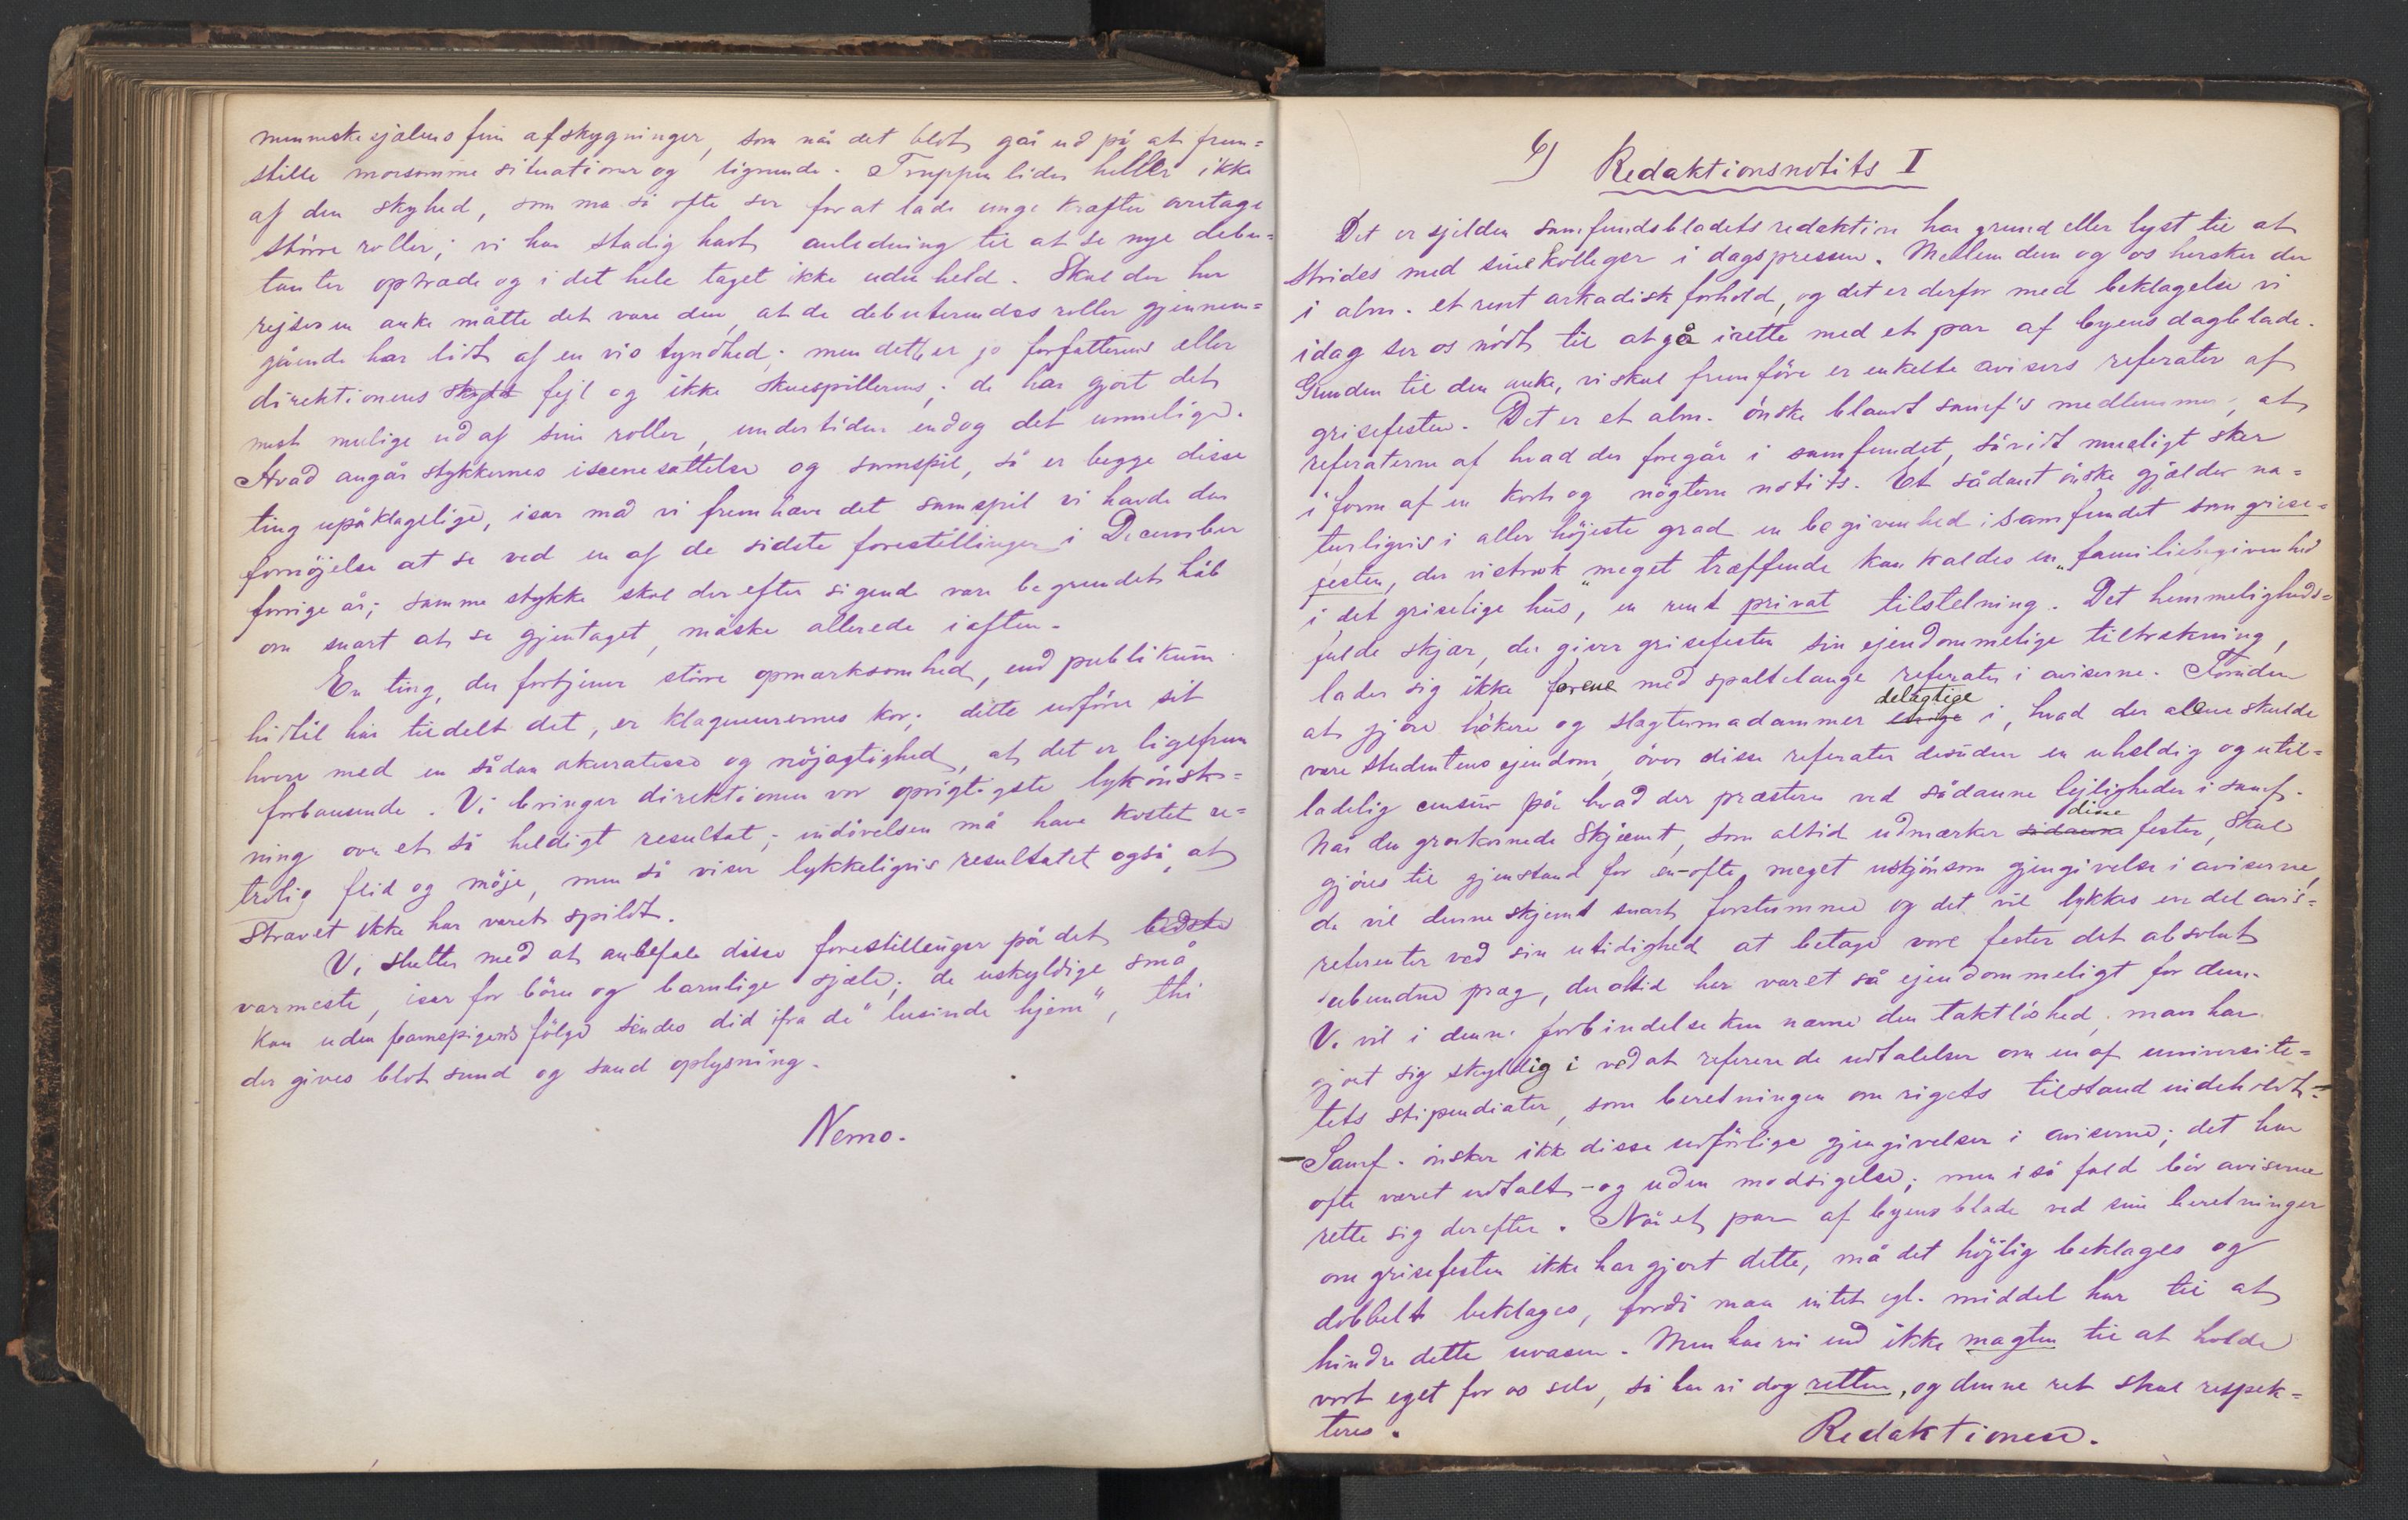 menneskesjælens fine afskygninger, som når det blot går ud på at frem=
stille morsomme situationer og lignende. Truppen lider heller ikke
af den skyhed, som man så ofte ser for at lade unge kræfter overtage
större roller; vi har stadig havt anledning til at se nye debu=
tanter optræde og i det hele taget ikke uden held. Skal der her
rejses en anke måtte det være den, at de debuterendes roller gjennem=
gående har lidt af en vis tyndhed; men dette er jo forfatterens eller
direktionens skyld fejl og ikke skuespillerens; de har gjort det
mest mulige ud af sine roller, undertiden endog det umulige.
Hvad angår stykkernes iscenesættelse og samspil, så er begge disse
ting upåklagelige, især må vi fremhæve det samspil vi havde den
fornöjelse at se ved en af de sidste forestillinger i December
forrige år; samme stykke skal der efter sigende være begrundet håb
om snart at se gjentaget, måske allerede iaften.
En ting, der fortjener större opmærksomhed, end publikum
hidtil har tildelt det, er klaqueurernes kor; dette udförer sit
hverv med en sådan akuratesse og nöjagtighed, at det er ligefrem
forbausende. Vi bringer direktionen vor oprigtigste lykönsk=
ning over et så heldigt resultat; indövelsen må have kostet u=
trolig flid og möje, men så viser lykkeligvis resultatet også, at
strævet ikke har været spildt.
Vi slutter med at anbefale disse forestillinger på det bedste
varmeste, især for börn og barnlige sjæle; de uskyldige små
kan uden barnepigens fölge sendes did ifra de "lusinde hjem", thi
der gives blot sund og sand oplysning.
Nemo.
6) Redaktionsnotits I
Det er sjelden samfundsbladets redaktion har grund eller lyst til at
strides med sine kolleger i dagspressen. Mellem dem og os hersker der
i alm. et rent arkadisk forhold, og det er derfor med beklagelse vi
idag ser os nödt til at gå irette med et par af byens dagblade.
Grunden til den anke, vi skal fremföre er enkelte avisers referater af
grisefesten. Det er et alm. önske blandt samf's medlemmer, at
referaterne af hvad der foregår i samfundet, såvidt mueligt sker
i form af en kort og nögtern notits. Et sådant önske gjælder na=
turligvis i aller höjeste grad en begivenhed i samfundet som grise=
festen, der vistnok meget træffende kan kaldes en "familiebegivenhed
i det griselige hus", en rent privat tilstelning. Det hemmeligheds=
fulde skjær, der giver grisefesten sin ejendommelige tiltrækning,
lader sig ikke forene med spaltelange referater i aviserne. Foruden
at gjöre hökere og slagtermadammer delagtige i, hvad der alene skulde
være studentens ejendom, över disse referater desuden en uheldig og util=
ladelig censur på hvad der præsteres ved sådanne lejligheder i samf.
Når den grovkornede skjæmt, som altid udmærker sådanne disse fester, skal
gjöres til gjenstand for en - ofte meget uskjönsom gjengivelse i aviserne,
da vil denne skjemt snart forstumme og det vil lykkes en del avis=
referenter ved sin utidighed at betage vore fester det absolut
ubundne præg, der altid har været så ejendommeligt for dem.
Vi vil i denne forbindelse kun nævne den taktlöshed, man har
gjort sig skyldig i ved at referere de udtalelser om en af universite=
tets stipendiater, som beretningen om rigets tilstand indeholdt. -
- Samf. önsker ikke disse udförlige gjengivelser i aviserne; det har
ofte været udtalt - og uden modsigelse; men i så fald bör aviserne
rette sig derefter. Når et par af byens blade ved sine beretninger
om grisefesten ikke har gjort dette, må det höjlig beklages og
dobbelt beklages, fordi man intet egl. middel har til at
hindre dette uvæsen. Men har vi end ikke magten til at holde
vort eget for os selv, så har vi dog retten, og denne ret skal respek=
teres.
Redaktionen.